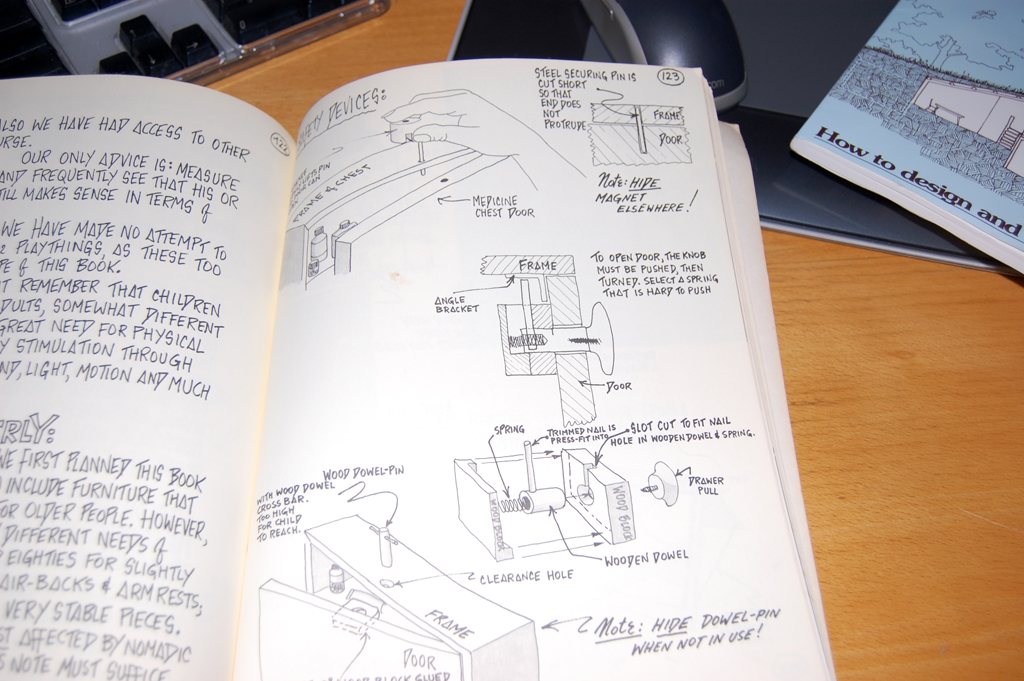 ALSO WE HAVE HAD ACCESS TO OTHER
OUR ONLY ADVICE IS: MEASURE
AND FREQUENTLY SEE THAT HIS OR
MAKES SENSE IN TERMS OF
WE HAVE MADE NO ATTEMPT TO
PLAYTHINGS, AS THESE TOO
OF THIS BOOK.
REMEMBER THAT CHILDREN
SOMEWHAT DIFFERENT
GREAT NEED FOR PHYSICAL
STIMULATION THROUGH
LIGHT, MOTION AND MUCH
WE FIRST PLANNED THIS BOOK
INCLUDE FURNITURE THAT
OLDER PEOPLE. HOWEVER,
DIFFERENT NEEDS OF
EIGHTIES FOR SLIGHTLY
& ARMRESTS;
VERY STABLE PIECES.
AFFECTED BY NOMADIC
NOTE MUST SUFFICE
122
123
DEVICES:
STEEL SECURING PIN IS
CUT SHORT
SO THAT
END DOES
NOT
PROTRUDE
FRAME
DOOR
NOTE: HIDE
MAGNET
ELSEWHERE!
FRAME & CHEST
MEDICINE
CHEST DOOR
FRAME
ANGLE
BRACKET
TO OPEN DOOR, THE KNOB
MUST BE PUSHED, THEN
TURNED. SELECT A SPRING
THAT IS HARD TO PUSH
DOOR
SPRING
TRIMMED NAIL IS
PRESS-FIT INTO
SLOT CUT TO FIT NAIL
HOLE IN WOODEN DOWEL & SPRING.
WOOD BLOCK
WOOD BLOCK
DRAWER
PULL
WOODEN DOWEL
WOOD DOWEL-PIN
WITH WOOD DOWEL
CROSS BAR.
TOO HIGH
FOR CHILD
TO REACH.
CLEARANCE HOLE
FRAME
DOOR
NOTE: HIDE DOWEL-PIN
WHEN NOT IN USE!
WOOD BLOCK GLUED
How to design and